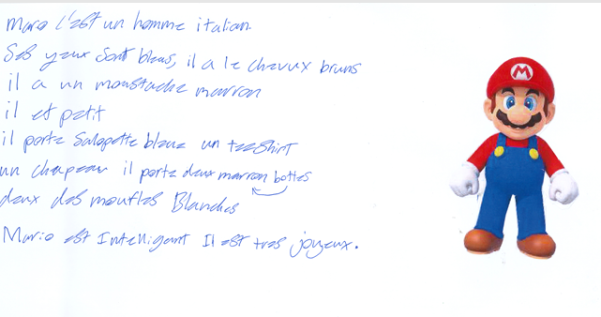 Mario c'est un homme italian
Ses yeux sont bleus, il a le chevux bruns
il a un moustache marron
il et petit
il porte Salopette bleue un teeshirt
un chapeau il porte deux marron bottes
deux des moufles Blanches
Mario est Intelligent Il est tres joyeux.
M